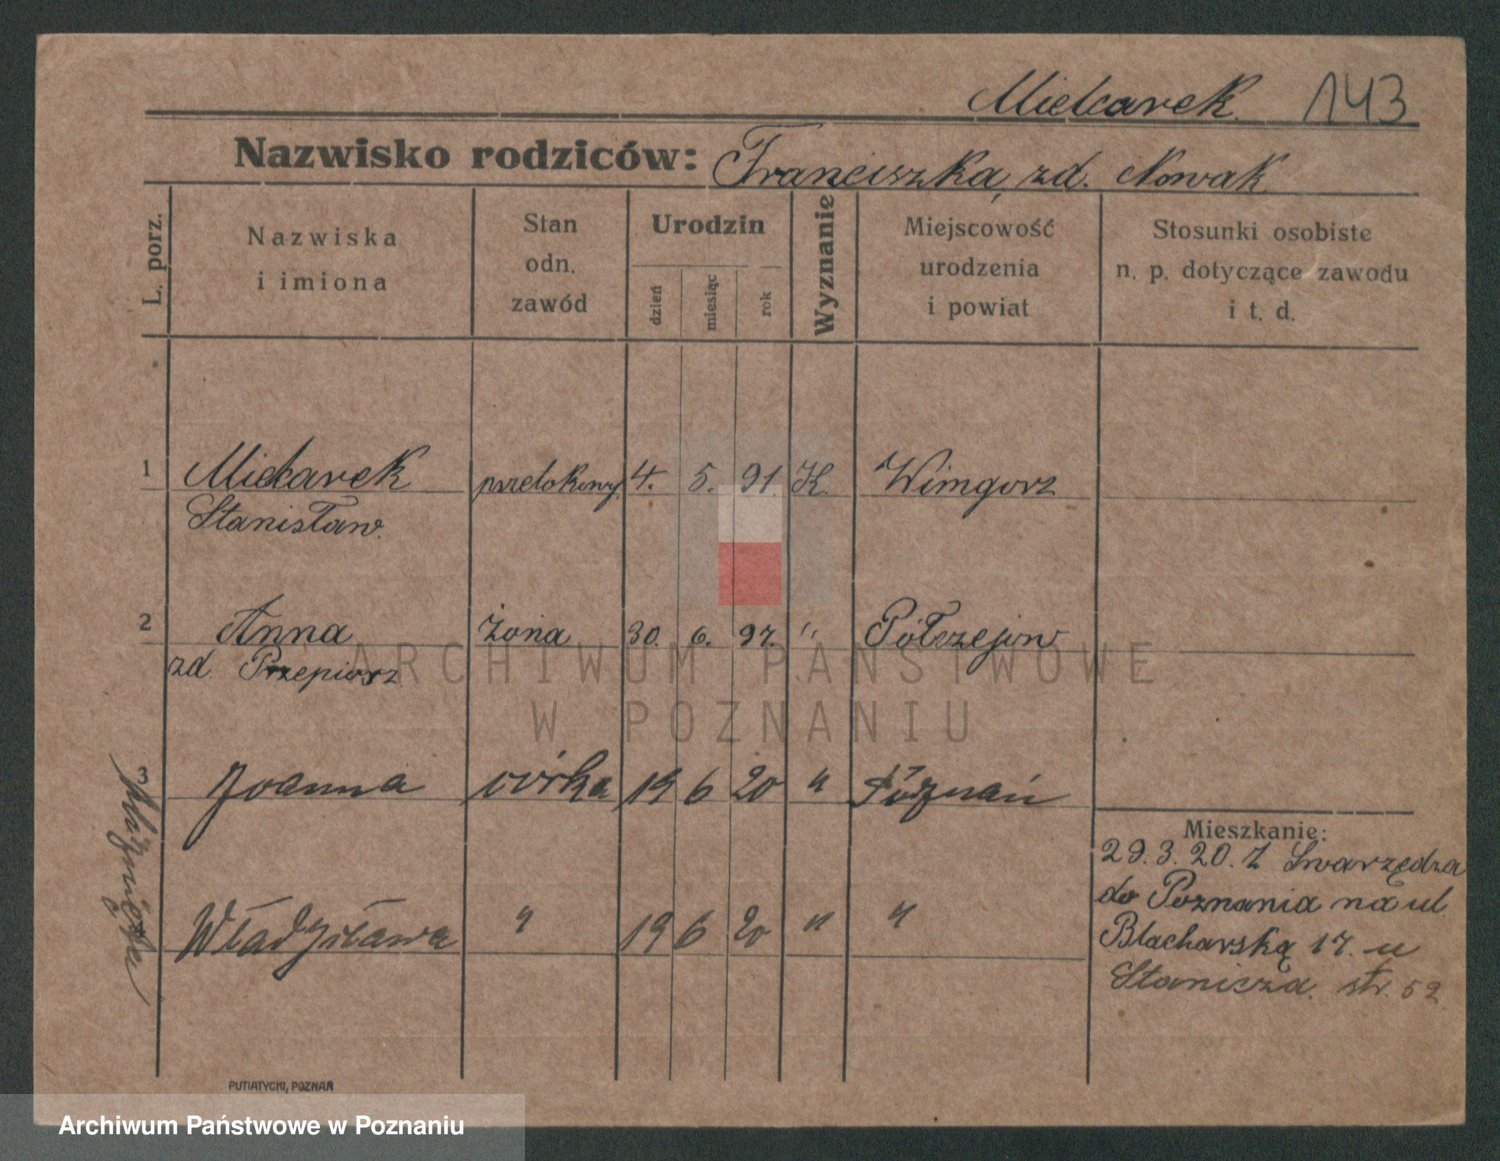 Mielcarek 143
Nazwisko rodziców: Franciszka, zd. Nowak
L. porz.
Nazwiska
i imiona
Stan
odn.
zawód
Urodzin
dzień
miesiąc
rok
Wyznanie
Miejscowość
urodzenia
i powiat
Stosunki osobiste
n. p. dotyczące zawodu
i t. d.
1 Mielcarek 4. 5. 91. K.
Stanisław
2 Anna żona 30. 6. 97. "
zd
3 Joanna córka 19 6 20 " Poznań
Władzisława " 19 6 20 " "
Mieszkanie:
29.3.20. Z Swarzędza
do Poznania na ul
Blacharską 17. u
str. 52
PUTIATYCKI, POZNAŃ
ARCHIWUM PAŃSTWOWE
W POZNANIU
Archiwum Państwowe w Poznaniu